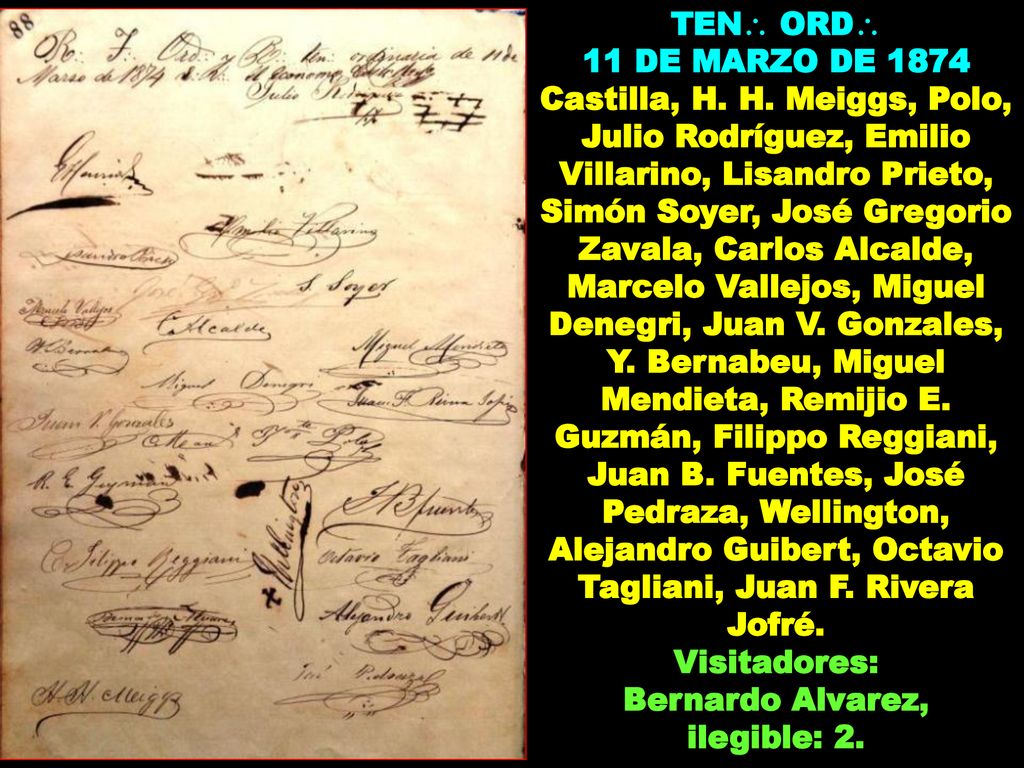 88
R∴ F∴ Ord∴ y
Marzo de 1874
Julio
Emilio Villarino
S. Soyer
Marcelo Vallejos
C. Alcalde
Miguel Mendieta
Miguel Denegri
Juan V. Gonzales
Polo
R. E. Guzman
J B Fuentes
Wellington
Filippo Reggiani
Octavio Tagliani
Alejandro Guibert
Bernardo Alvarez
José Pedraza
H. H. Meiggs
TEN∴ ORD∴
11 DE MARZO DE 1874
Castilla, H. H. Meiggs, Polo,
Julio Rodríguez, Emilio
Villarino, Lisandro Prieto,
Simón Soyer, José Gregorio
Zavala, Carlos Alcalde,
Marcelo Vallejos, Miguel
Denegri, Juan V. Gonzales,
Y. Bernabeu, Miguel
Mendieta, Remijio E.
Guzmán, Filippo Reggiani,
Juan B. Fuentes, José
Pedraza, Wellington,
Alejandro Guibert, Octavio
Tagliani, Juan F. Rivera
Jofré.
Visitadores:
Bernardo Alvarez,
ilegible: 2.